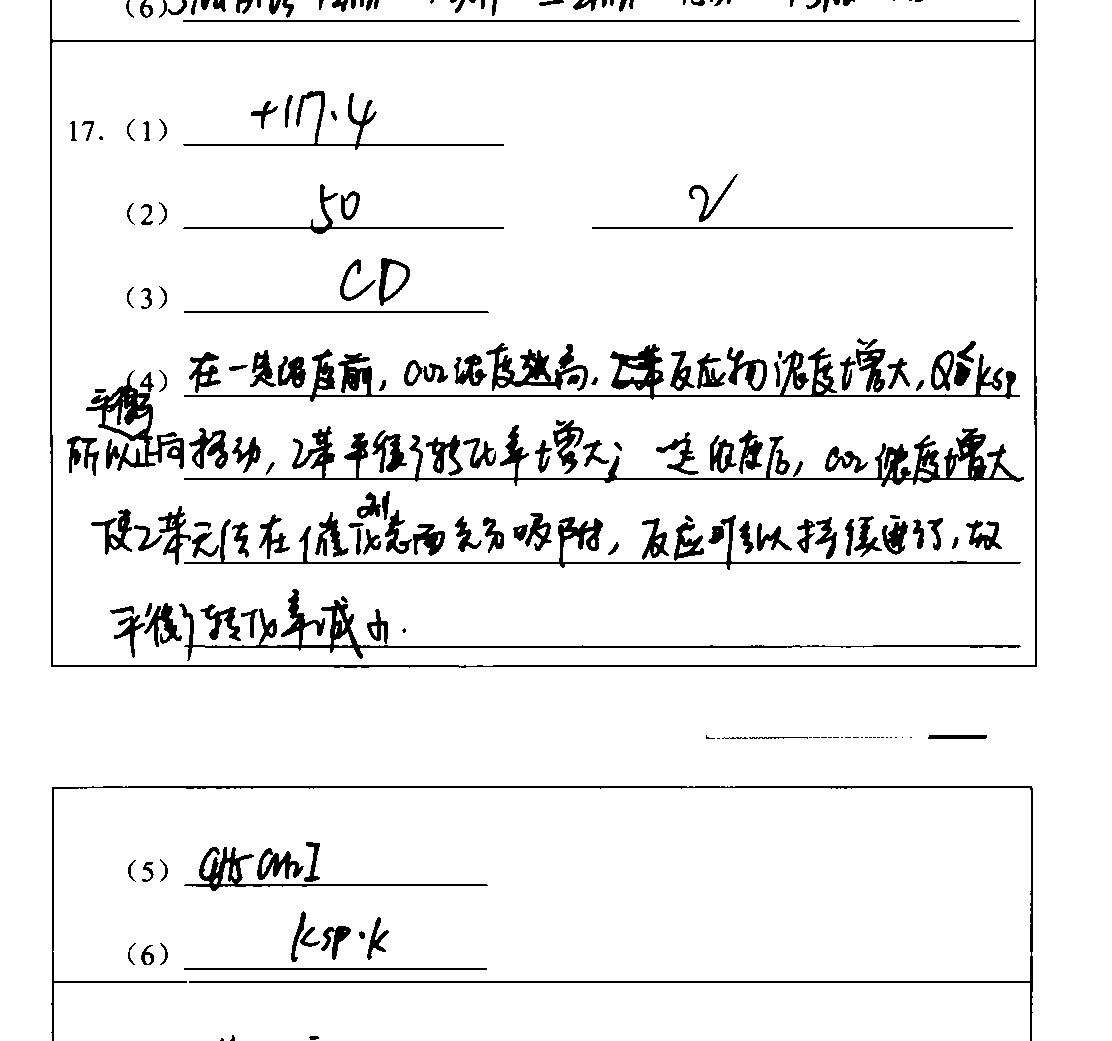 (6)
17. (1) +117.4
(2) 50 2
(3) CD
(4) 在一定浓度前，CO2浓度越高，乙苯反应物浓度增大，Q<Ksp
平衡
所以正向移动，乙苯平衡转化率增大；一定浓度后，CO2浓度增大
使乙苯无法在催化剂表面充分吸附，反应可以持续进行，故
平衡转化率减小.
(5) C6H5CH2I
(6) Ksp·K